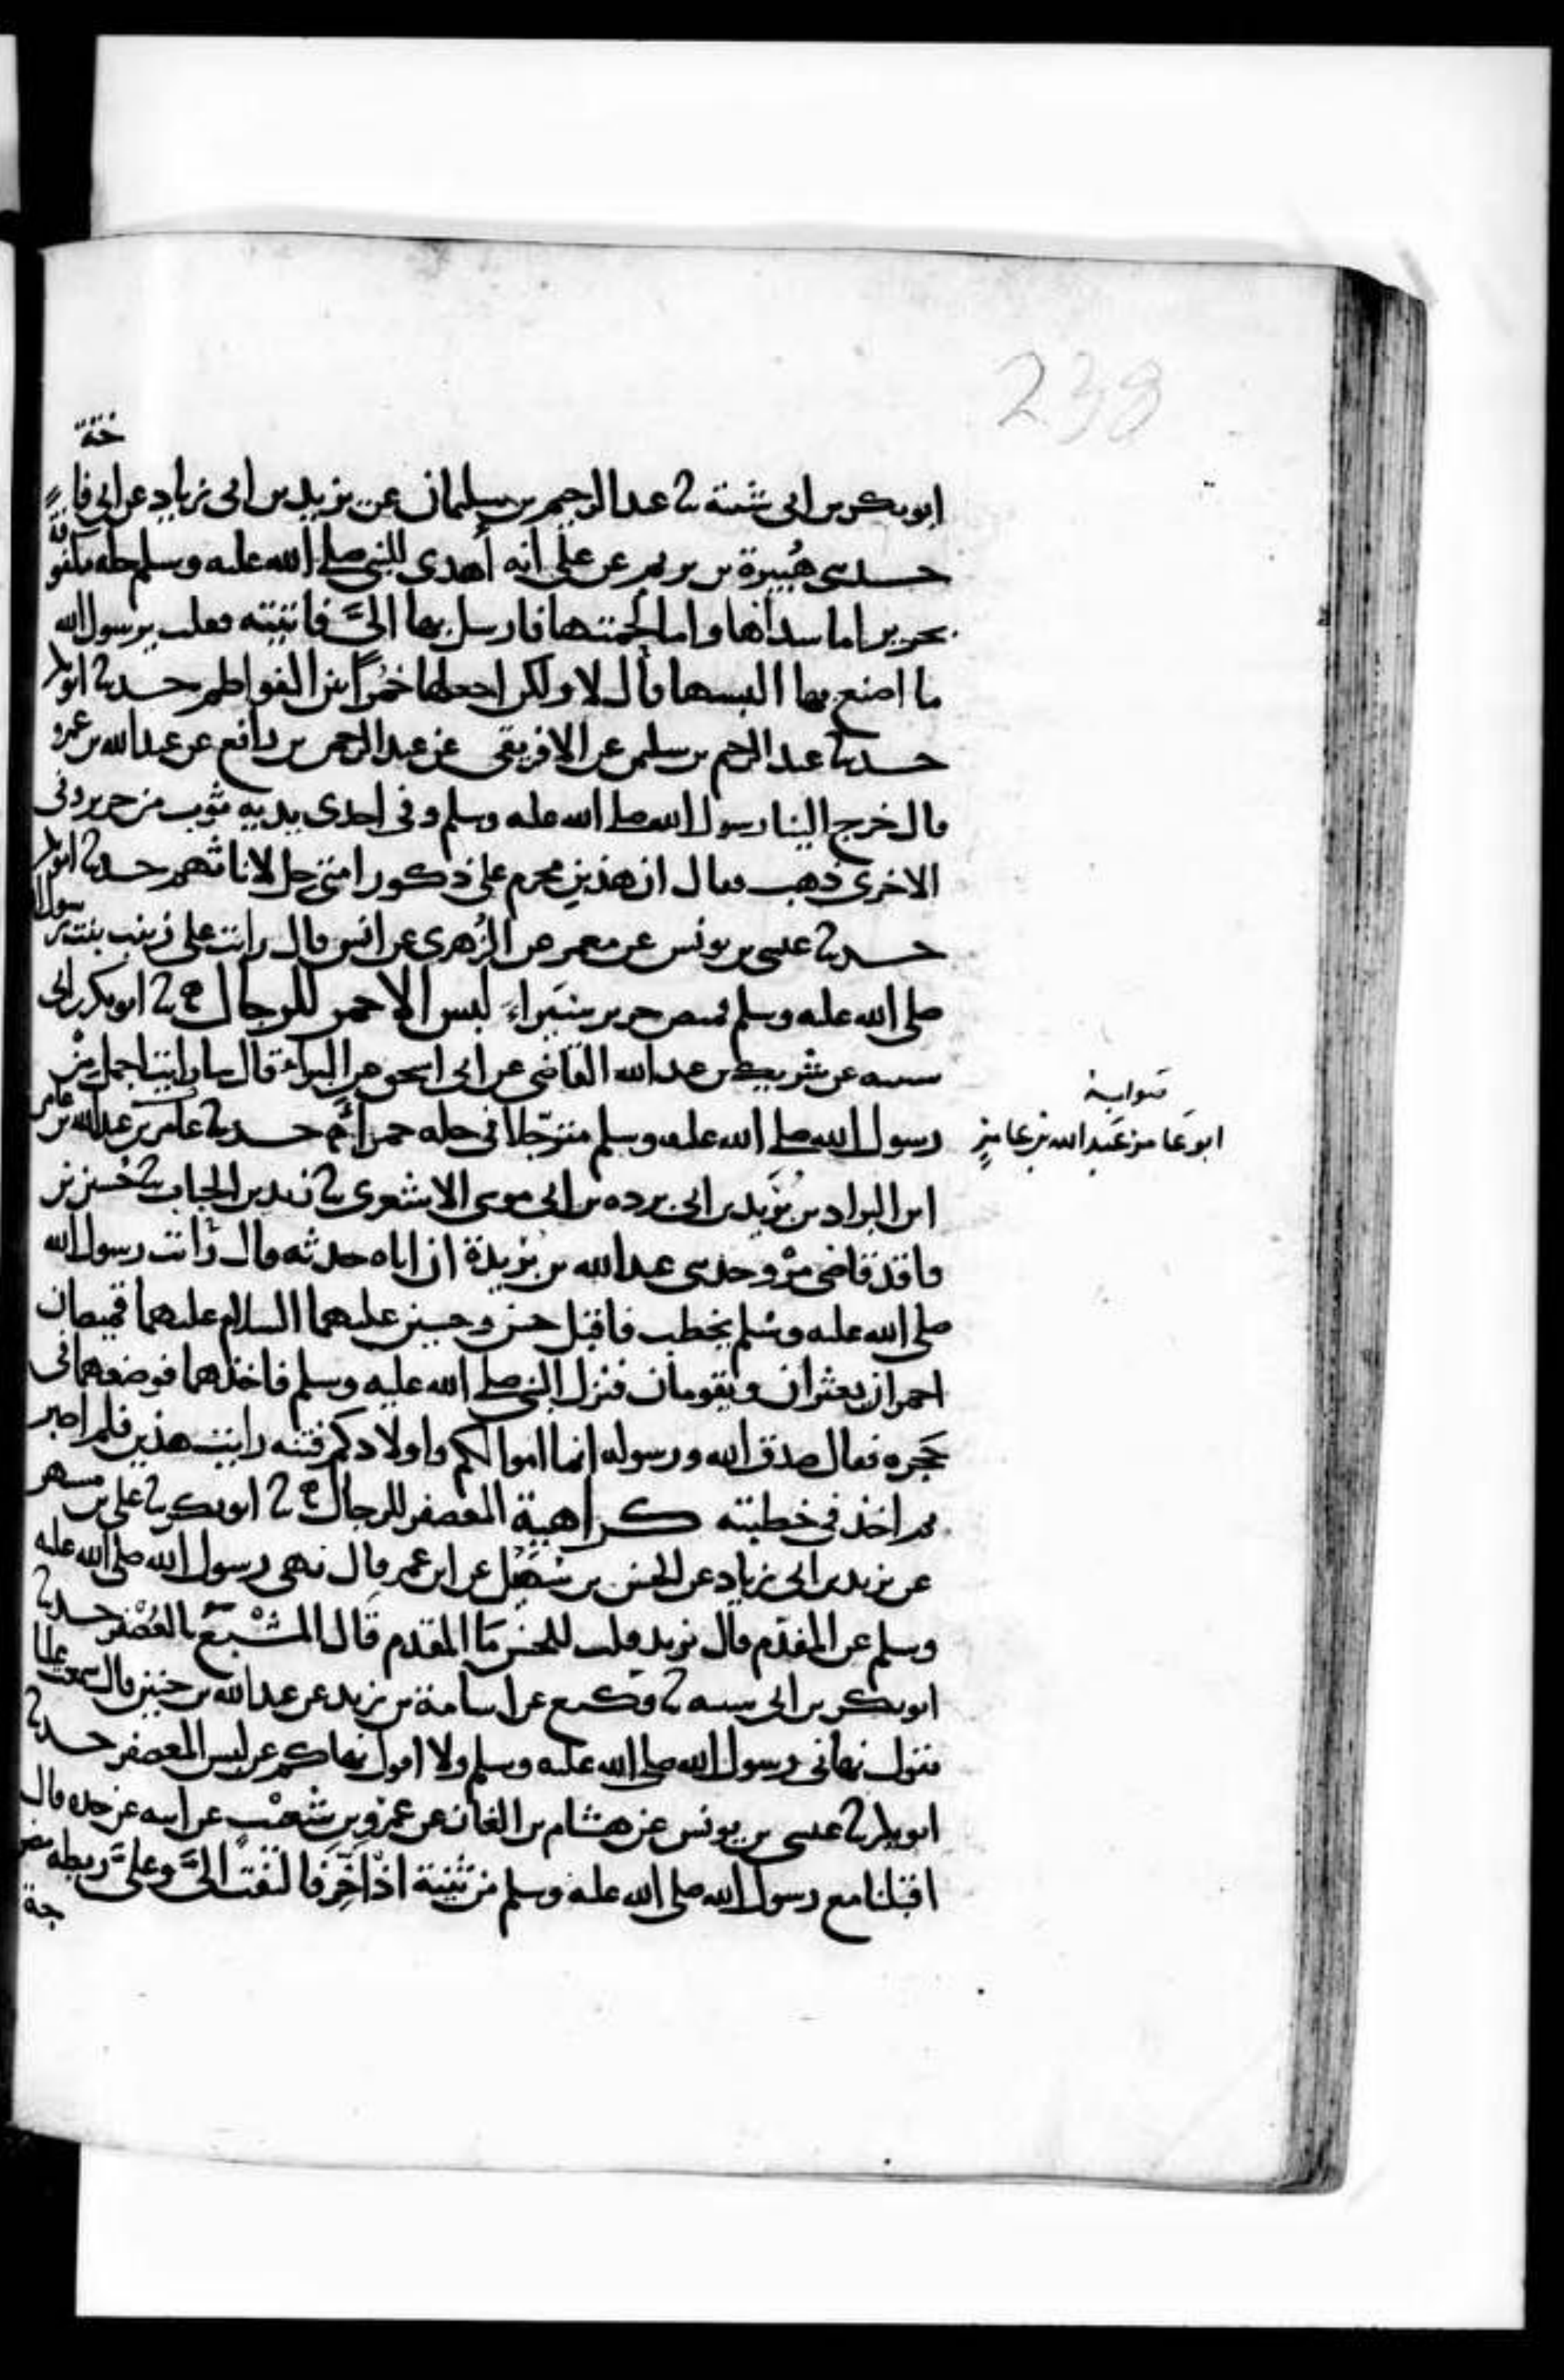 238
ابو بكر بن ابي شيبة ثنا عبد الرحيم بن سليمان عن يزيد بن ابي زياد عن ابي فاختة
حدثني هُبيرة بن يريم عن علي انه أُهدى للنبي صلى الله عليه وسلم حله مكفوفة
بحرير اما سداها واما لحمتها فارسل بها اليَّ فاتيته فقلت يرسول الله
ما اصنع بها البسها قال لا ولكن اجعلها خمرًا بين الفواطم حدثنا ابو بكر
حدثنا عبد الرحيم بن سليمن عن الافريقي عن عبد الرحمن بن رافع عن عبد الله بن عمرو
قال خرج الينا رسول الله صلى الله عليه وسلم وفي احدى يديه ثوب من حرير وفي
الاخرى ذهب فقال ان هذين محرم على ذكور امتي حل لاناثهم حدثنا ابو بكر
حدثنا عيسى بن يونس عن معمر عن الزُهرى عن انس قال رايت على زينب بنت رسول الله
صلى الله عليه وسلم قميص حرير سيَراء لبس الاحمر للرجال ثنا ابو بكر بن ابي
شيبه عن شريك بن عبد الله القاضي عن ابي اسحق عن البراء قال ما رايت اجمل مِنْ
رسول الله صلى الله عليه وسلم مترجّلا في حله حمراء حدثنا عامر بن عبد الله بن عامر
صوابه
ابو عامر عَبد الله بن عامر
ابن البراد بن بُرَيد بن ابي برده بن ابي موسى الاشعرى ثنا زيد بن الحباب ثنا حُسين بن
واقد قاضي مرْو حدثني عبد الله بن بُريدة ان اباه حدثه قال رَايت رسول الله
صلى الله عليه وسلم يخطب فاقبل حسن وحسين عليهما السلام عليهما قميصان
احمران يعثران ويقومان فنزل النبي صلى الله عليه وسلم فاخذهما فوضعهما في
حَجره فقال صدق الله ورسوله انما اموالكم واولادكم فتنه رايت هذين فلم اصبر
ثم اخذ في خطبته كراهية المعصفر للرجال ثنا ابو بكر ثنا علي بن مسهر
عن يزيد بن ابي زياد عن الحسن بن سُهَيْل عن ابن عمر قال نهى رسول الله صلى الله عليه
وسلم عن المفدّم قال يزيد قلت للحسن مَا المفدم قال المشْبَعُ بالعُصْفر حدثنا
ابو بكر بن ابي شيبه ثنا وكيع عن اسامة بن زيد عن عبد الله بن حنين قال سمعت عليا
يقول نهاني رسول الله صلى الله عليه وسلم ولا اقول نهاكم عن لبس المعصفر حدثنا
ابو بكر ثنا عيسى بن يونس عن هشام بن الغاز عن عمرو بن شعيْب عن ابيه عن جده قال
اقبلنا مع رسول الله صلى الله عليه وسلم من ثنية اذاخِر فالتفتَ اليَّ وعليَّ ريطه مضرجة